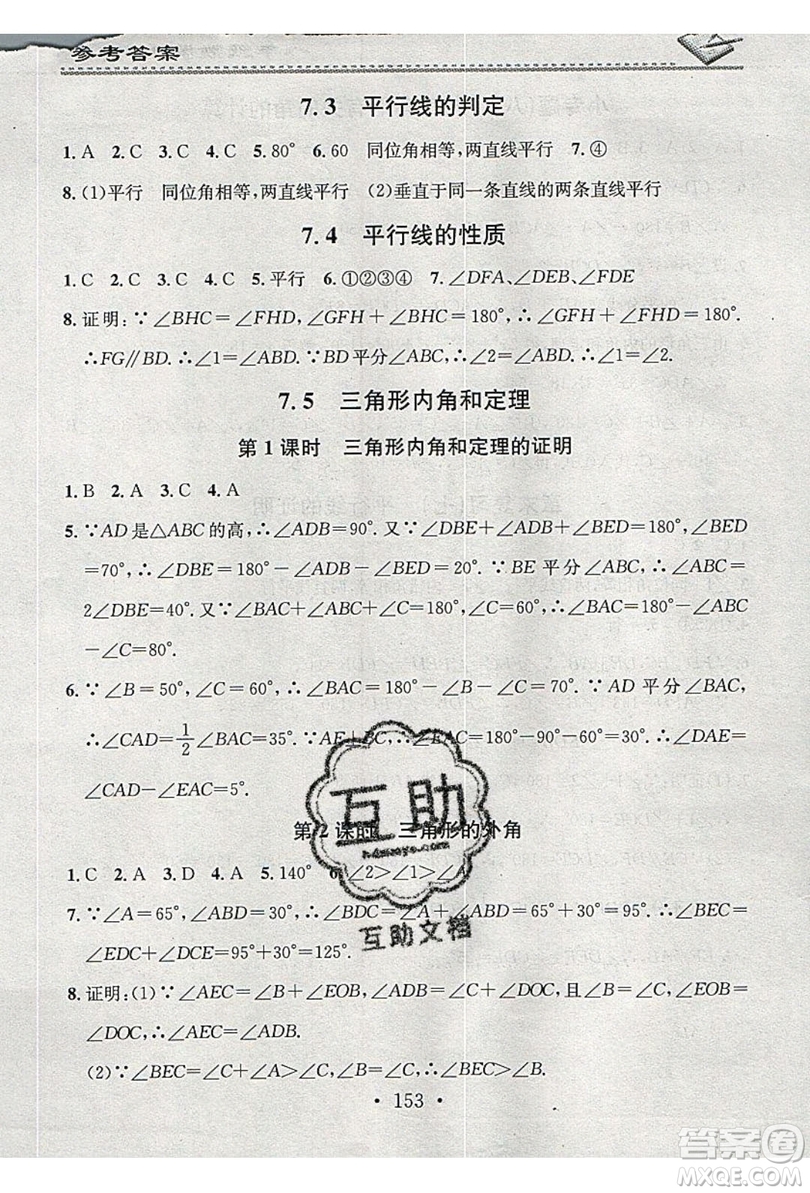 参考答案
7.3 平行线的判定
1.A 2.C 3.C 4.C 5.80° 6.60 同位角相等,两直线平行 7.④
8.(1)平行 同位角相等,两直线平行 (2)垂直于同一条直线的两条直线平行
7.4 平行线的性质
1.C 2.C 3.C 4.C 5.平行 6.①②③④ 7.∠DFA、∠DEB、∠FDE
8.证明:∵∠BHC=∠FHD,∠GFH+∠BHC=180°,∴∠GFH+∠FHD=180°.
∴FG∥BD.∴∠1=∠ABD.∵BD平分∠ABC,∴∠2=∠ABD.∴∠1=∠2.
7.5 三角形内角和定理
第1课时 三角形内角和定理的证明
1.B 2.A 3.C 4.A
5.∵AD是△ABC的高,∴∠ADB=90°.又∵∠DBE+∠ADB+∠BED=180°,∠BED
=70°,∴∠DBE=180°-∠ADB-∠BED=20°.∵BE平分∠ABC,∴∠ABC=
2∠DBE=40°.又∵∠BAC+∠ABC+∠C=180°,∠C=60°,∴∠BAC=180°-∠ABC
-∠C=80°.
6.∵∠B=50°,∠C=60°,∴∠BAC=180°-50°-60°=70°.∵AD平分∠BAC,
∴∠CAD=1/2∠BAC=35°.∵AE⊥BC,∴∠EAC=180°-90°-60°=30°.∴∠DAE=
∠CAD-∠EAC=5°.
第2课时 三角形的外角
1.C 2.A 3.D 4.A 5.140° 6.∠2>∠1>∠A
7.∵∠A=65°,∠ABD=30°,∴∠BDC=∠A+∠ABD=65°+30°=95°.∴∠BEC=
∠EDC+∠DCE=95°+30°=125°.
8.证明:(1)∵∠AEC=∠B+∠EOB,∠ADB=∠C+∠DOC,且∠B=∠C,∠EOB=
∠DOC,∴∠AEC=∠ADB.
(2)∵∠BEC=∠A+∠ACE,∴∠BEC>∠ACE.∵∠ACE>∠ECB,∴∠BEC>∠ECB.
· 153 ·
互助
互助文档
答案圈
MXQE.COM